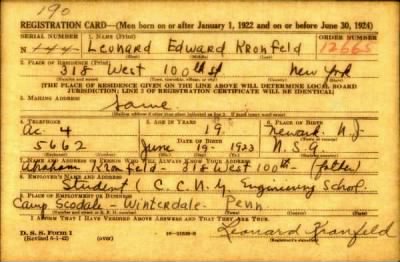 190
REGISTRATION CARD—(Men born on or after January 1, 1922 and on or before June 30, 1924)
SERIAL NUMBER 1. NAME (Print) ORDER NUMBER
N 144 Leonard Edward Kronfeld 12665
2. PLACE OF RESIDENCE (Print)
318 West 100th st New York
[THE PLACE OF RESIDENCE GIVEN ON THE LINE ABOVE WILL DETERMINE LOCAL BOARD
JURISDICTION; LINE 2 OF REGISTRATION CERTIFICATE WILL BE IDENTICAL]
3. MAILING ADDRESS
Same
4. TELEPHONE 5. AGE IN YEARS 6. PLACE OF BIRTH
Ac. 4 19 Newark N.J.
DATE OF BIRTH
5662 June 19- 1923
7. NAME AND ADDRESS OF PERSON WHO WILL ALWAYS KNOW YOUR ADDRESS
Abraham Kronfeld - 318 West 100th - (father)
8. EMPLOYER'S NAME AND ADDRESS
Student (C.C.N.Y. Engineering School
9. PLACE OF EMPLOYMENT OR BUSINESS
Camp - Winterdale - Penn.
I AFFIRM THAT I HAVE VERIFIED ABOVE ANSWERS AND THAT THEY ARE TRUE.
D. S. S. Form 1
(Revised 6-1-42) (over)
Leonard Kronfeld